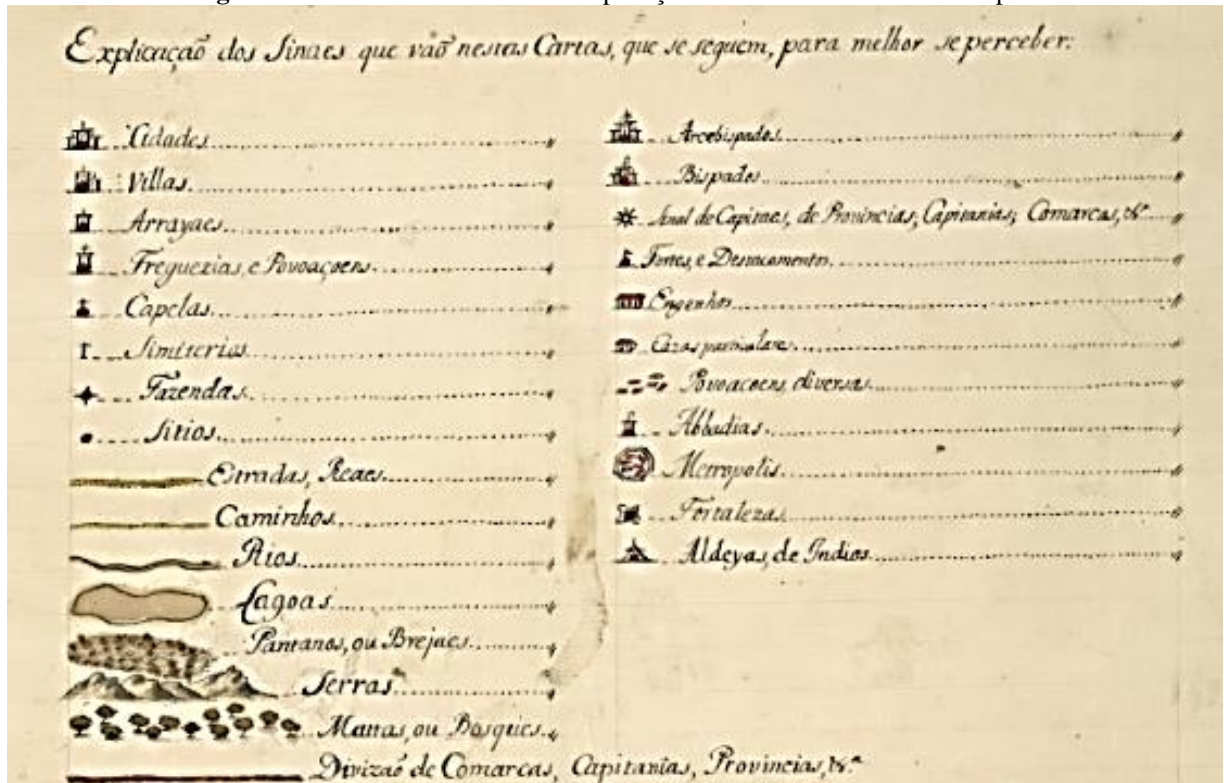 Explicaçaõ dos Sinaes que vaõ nestas Cartas, que se seguem, para melhor se perceber:
Cidades
Villas
Arrayaes
Freguezias, e Povoaçoens
Capelas
Simiterios
Fazendas
Sitios
Estradas, Reaes
Caminhos
Rios
Lagoas
Pantanos, ou Brejaes
Serras
Mattas, ou Bosques
Divizaõ de Comarcas, Capitanias, Provincias, &.ª
Arcebispados
Bispados
Sinal de Capitaes, de Provincias, Capitanias, Comarcas, &.ª
Fortes, e Destacamentos
Engenhos
Cazas particulares
Povoacoens, diversas
Abbadias
Metropolis
Fortalezas
Aldeyas, de Indios